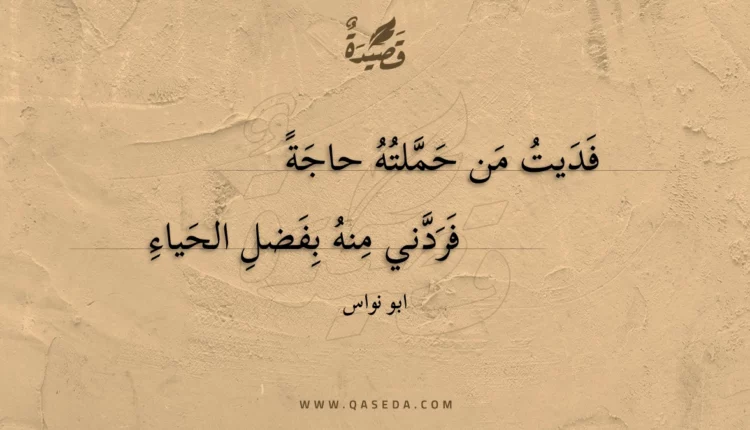 قَصِيدَةٌ
فَدَيتُ مَن حَمَّلتُهُ حاجَةً
فَرَدَّني مِنهُ بِفَضلِ الحَياءِ
ابو نواس
WWW.QASEDA.COM